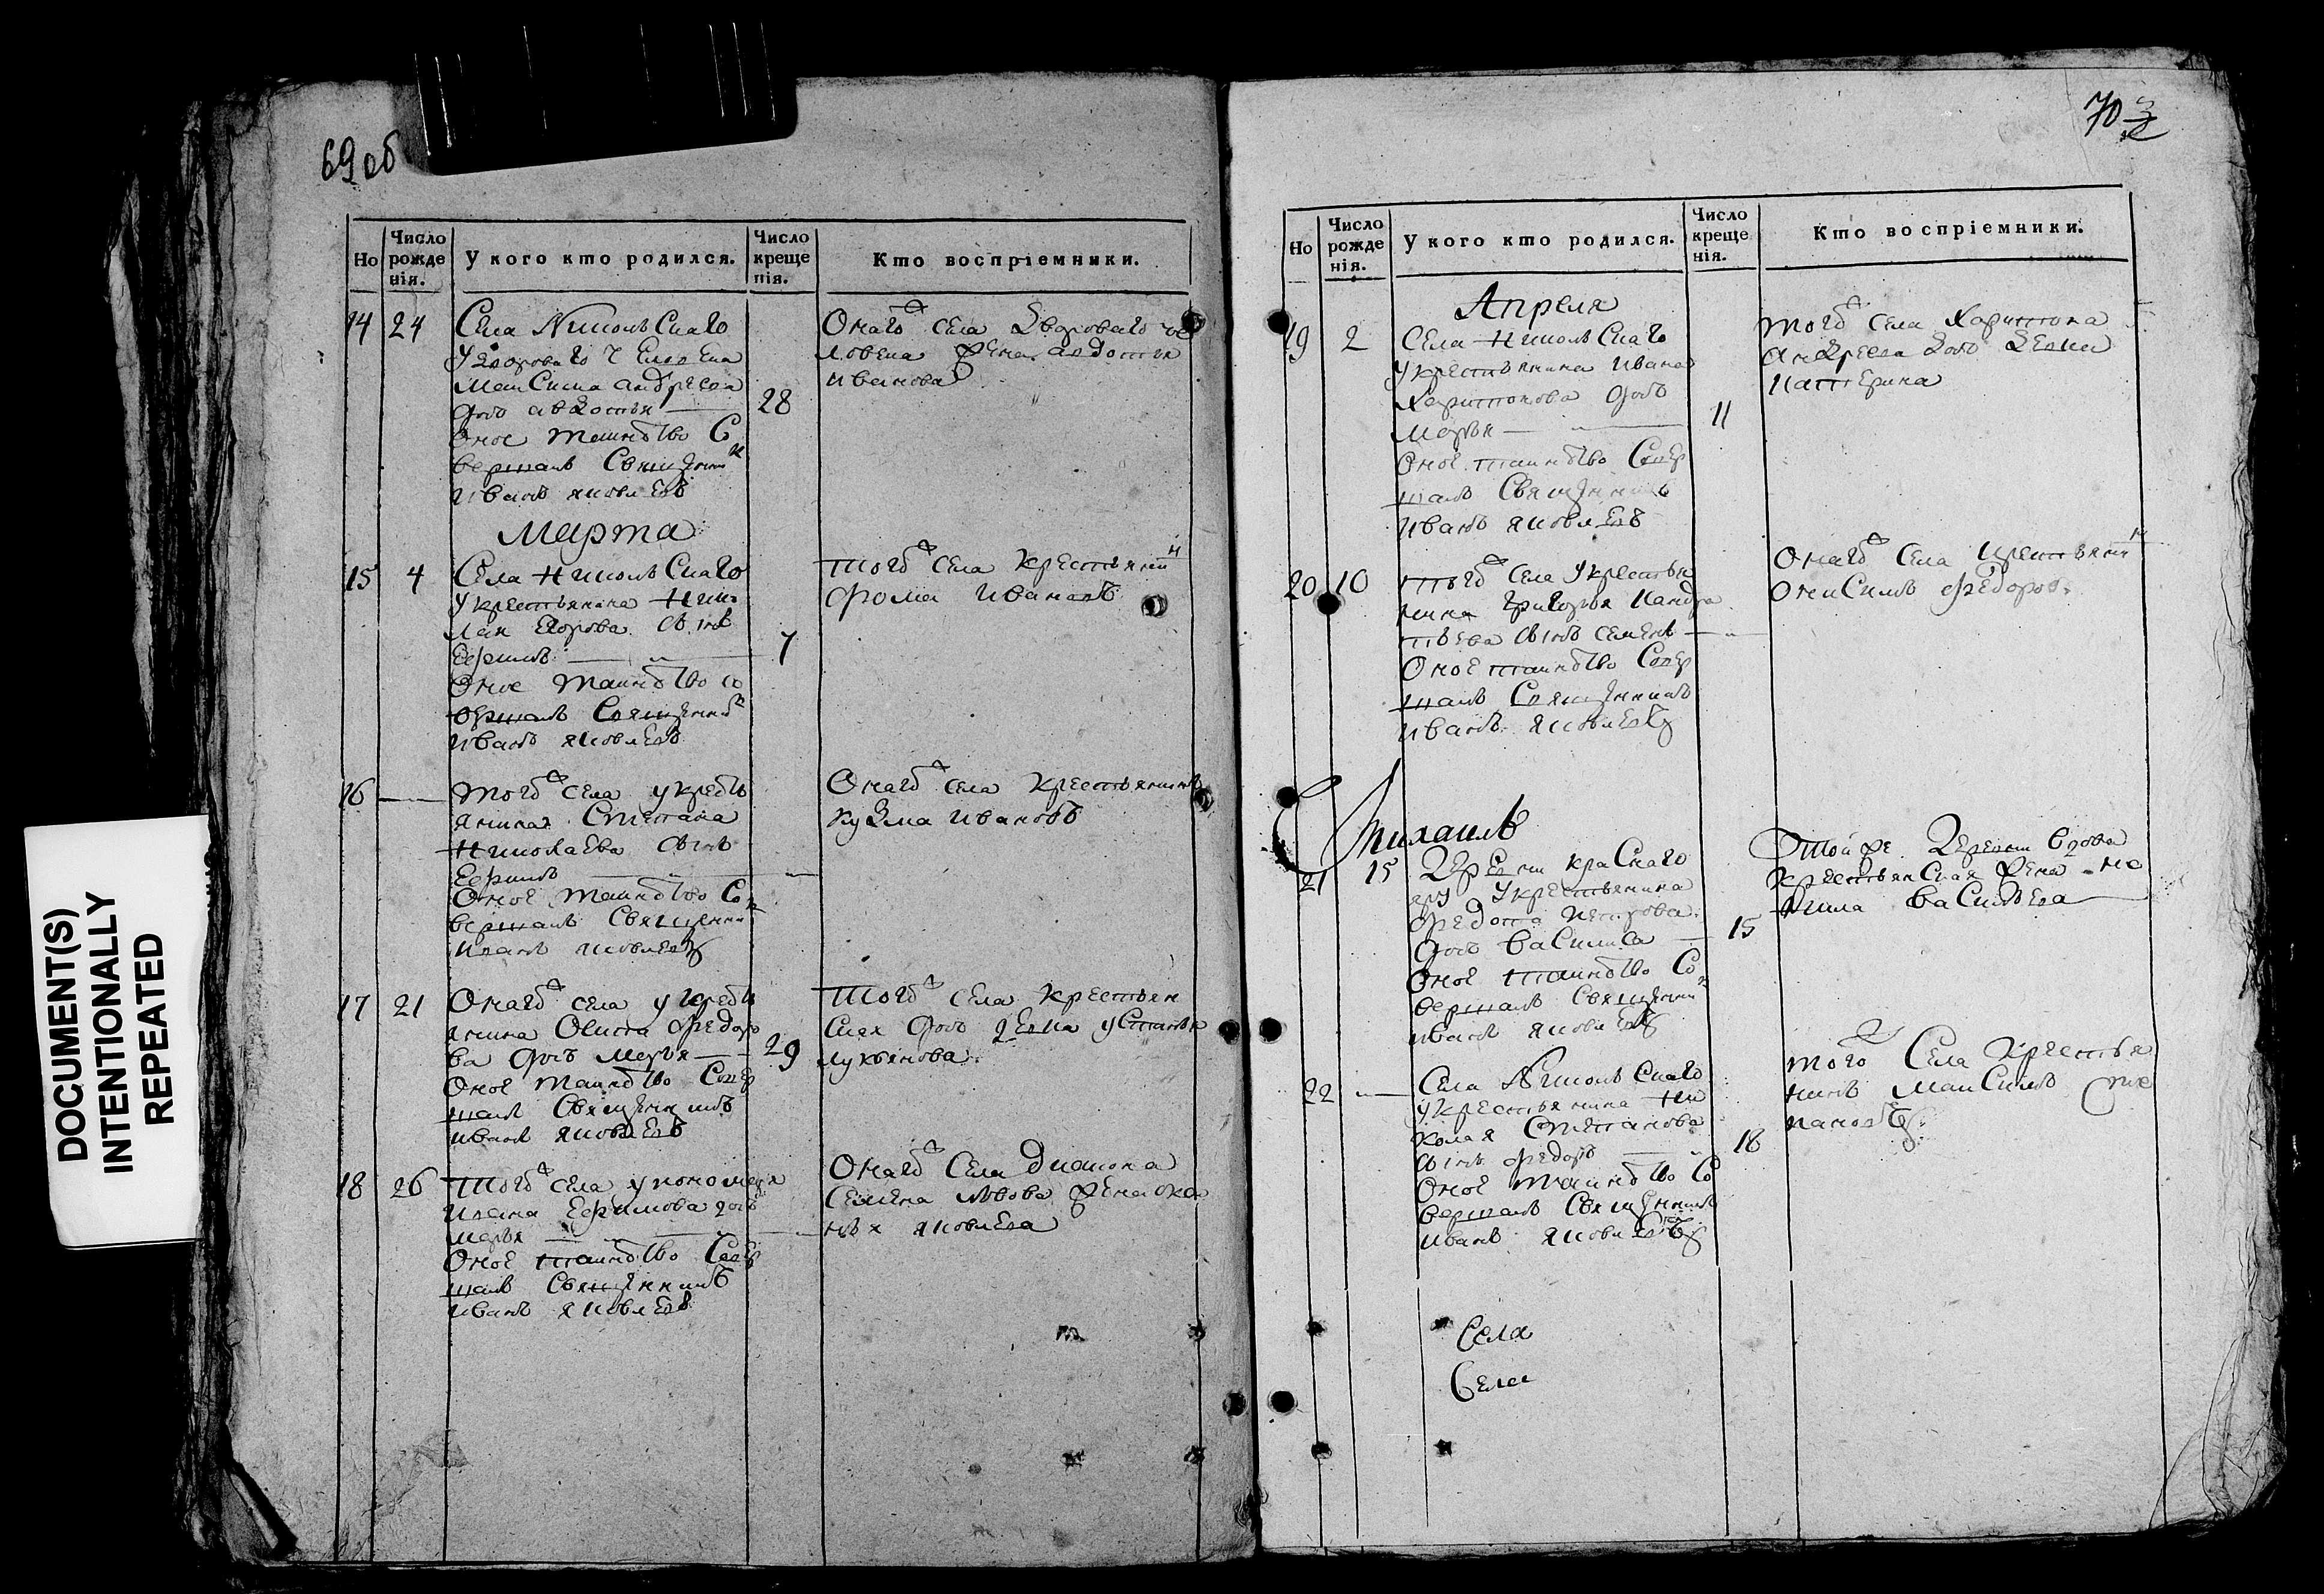 69 об
Но
Число рожде нія.
У кого кто родился.
Число креще нія.
Кто воспріемники.
14 24
Села Никольскаго
у дворового человека
Максима андреева
дочь авдотья 28
Оное таинство Со
вершалъ Священникъ
Иванъ яковлевъ
Онагож села дворового че
ловека жена авдотья
иванова
Марта
15 4
Села Никольскаго
у крестьянина Нико
лая Егорова сынъ
Ефимъ 7
Оное таинство со
вершалъ Священникъ
Иванъ яковлевъ
Тогож села крестьянинъ
Фома Ивановъ
16
Тогож села у кресть
янина Степана
Николаева сынъ
Ефимъ
Оное таинство Со
вершалъ Священни
Иванъ яковлевъ
Онагож села крестьянинъ
кузма Ивановъ
17 21
Онагож села у кресть
янина Осипа Федоро
ва дочь Марья 29
Оное таинство Совер
шалъ Священникъ
Иванъ яковлевъ
Тогож села крестьян
ская дочь девка устинья
лукьянова
18 26
Тогож села у пономаря
Ивана Ефимова дочь
Марья
Оное таинство Совер
шалъ Священникъ
Иванъ яковлевъ
Онагож села диакона
Семена Львова жена
яковлева
70
Но
Число рожде нія.
У кого кто родился.
Число креще нія.
Кто воспріемники.
Апреля
19 2
Села Никольскаго
у крестьянина Ивана
Харитонова дочь
Марья 11
Оное таинство Совер
шалъ Священникъ
Иванъ яковлевъ
Тогож села Харитона
андреева дочь девка
катерина
20 10
Тогож села у крестья
нина Григорья Кандра
тьева сынъ семенъ
Оное таинство Совер
шалъ Священникъ
Иванъ яковлевъ
Онагож села крестьянинъ
Онисимъ Федоров
Михаилъ
21 15
Деревни краснаго
яру у крестьянина
Федота петрова
дочь василиса 15
Оное таинство Со
вершалъ Священник
иванъ яковлевъ
Той же деревни вдова
крестьянская жена
васильева
22
Села Никольскаго
у крестьянина Ни
колая Степанова
сынъ Федоръ 18
Оное таинство Со
вершалъ Священникъ
Иванъ яковлевъ
того Села крестья
нинъ максимъ сте
пановъ
Села
Села
DOCUMENT(S)
INTENTIONALLY
REPEATED